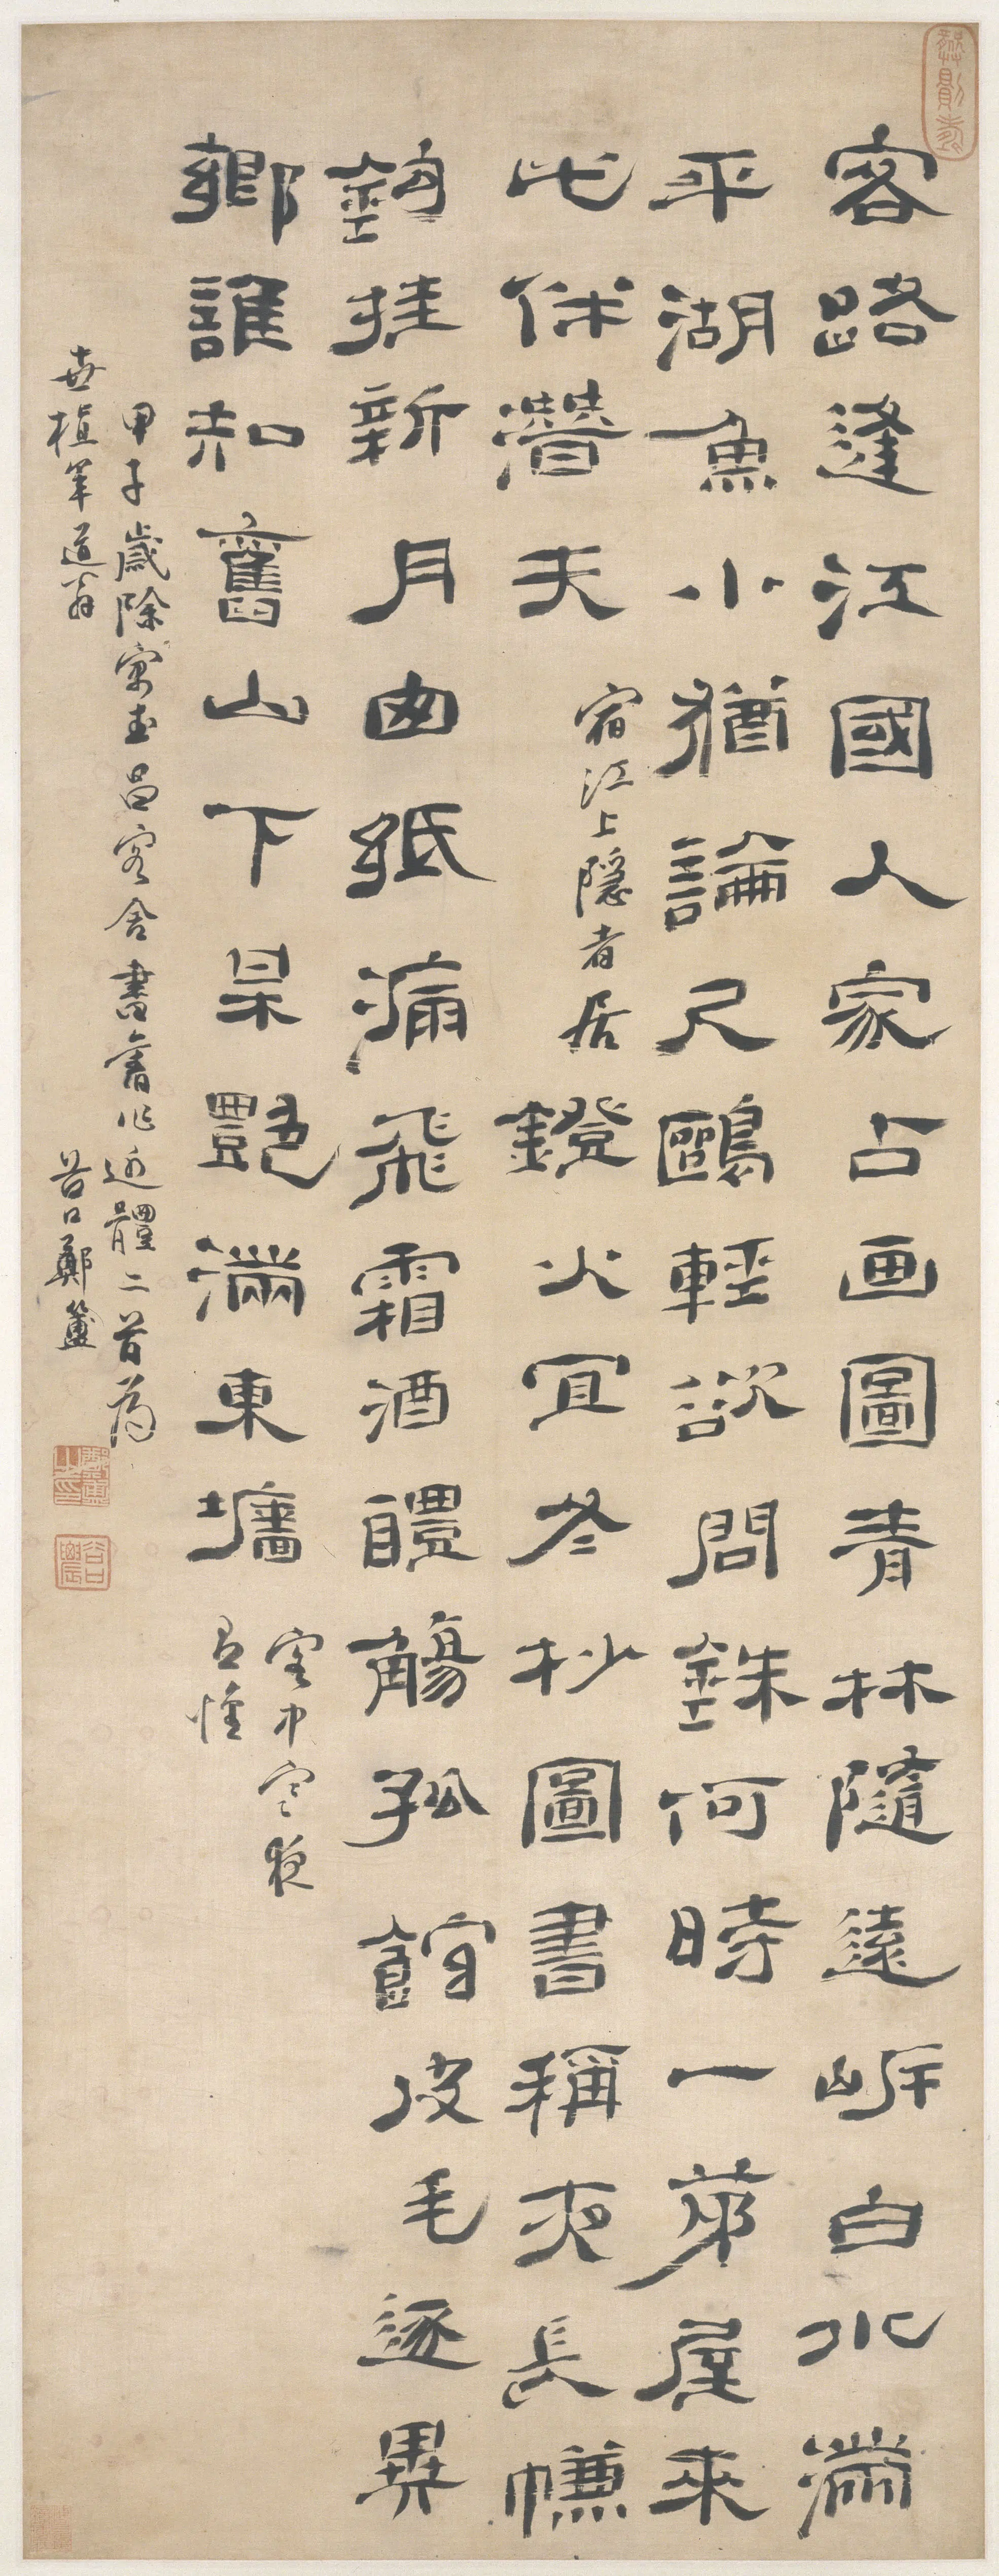 客路逢江國人家占画圖青林隨遠岍白水滿
平湖魚小猶論尺鷗輕欲問銖何時一茅屋來
此伴潛夫
宿江上隱者居
鐙火宜冬杪圖書稱夜長㡘
鉤挂新月囱紙漏飛霜酒醴觴孤館皮毛逐異
鄉誰知舊山下某艷滿東牆
客中寒夜
有懷
甲子歲除寓武昌客舍書舊作近體二首為
世植年道翁
谷口鄭簠
鄭簠之印
谷口農